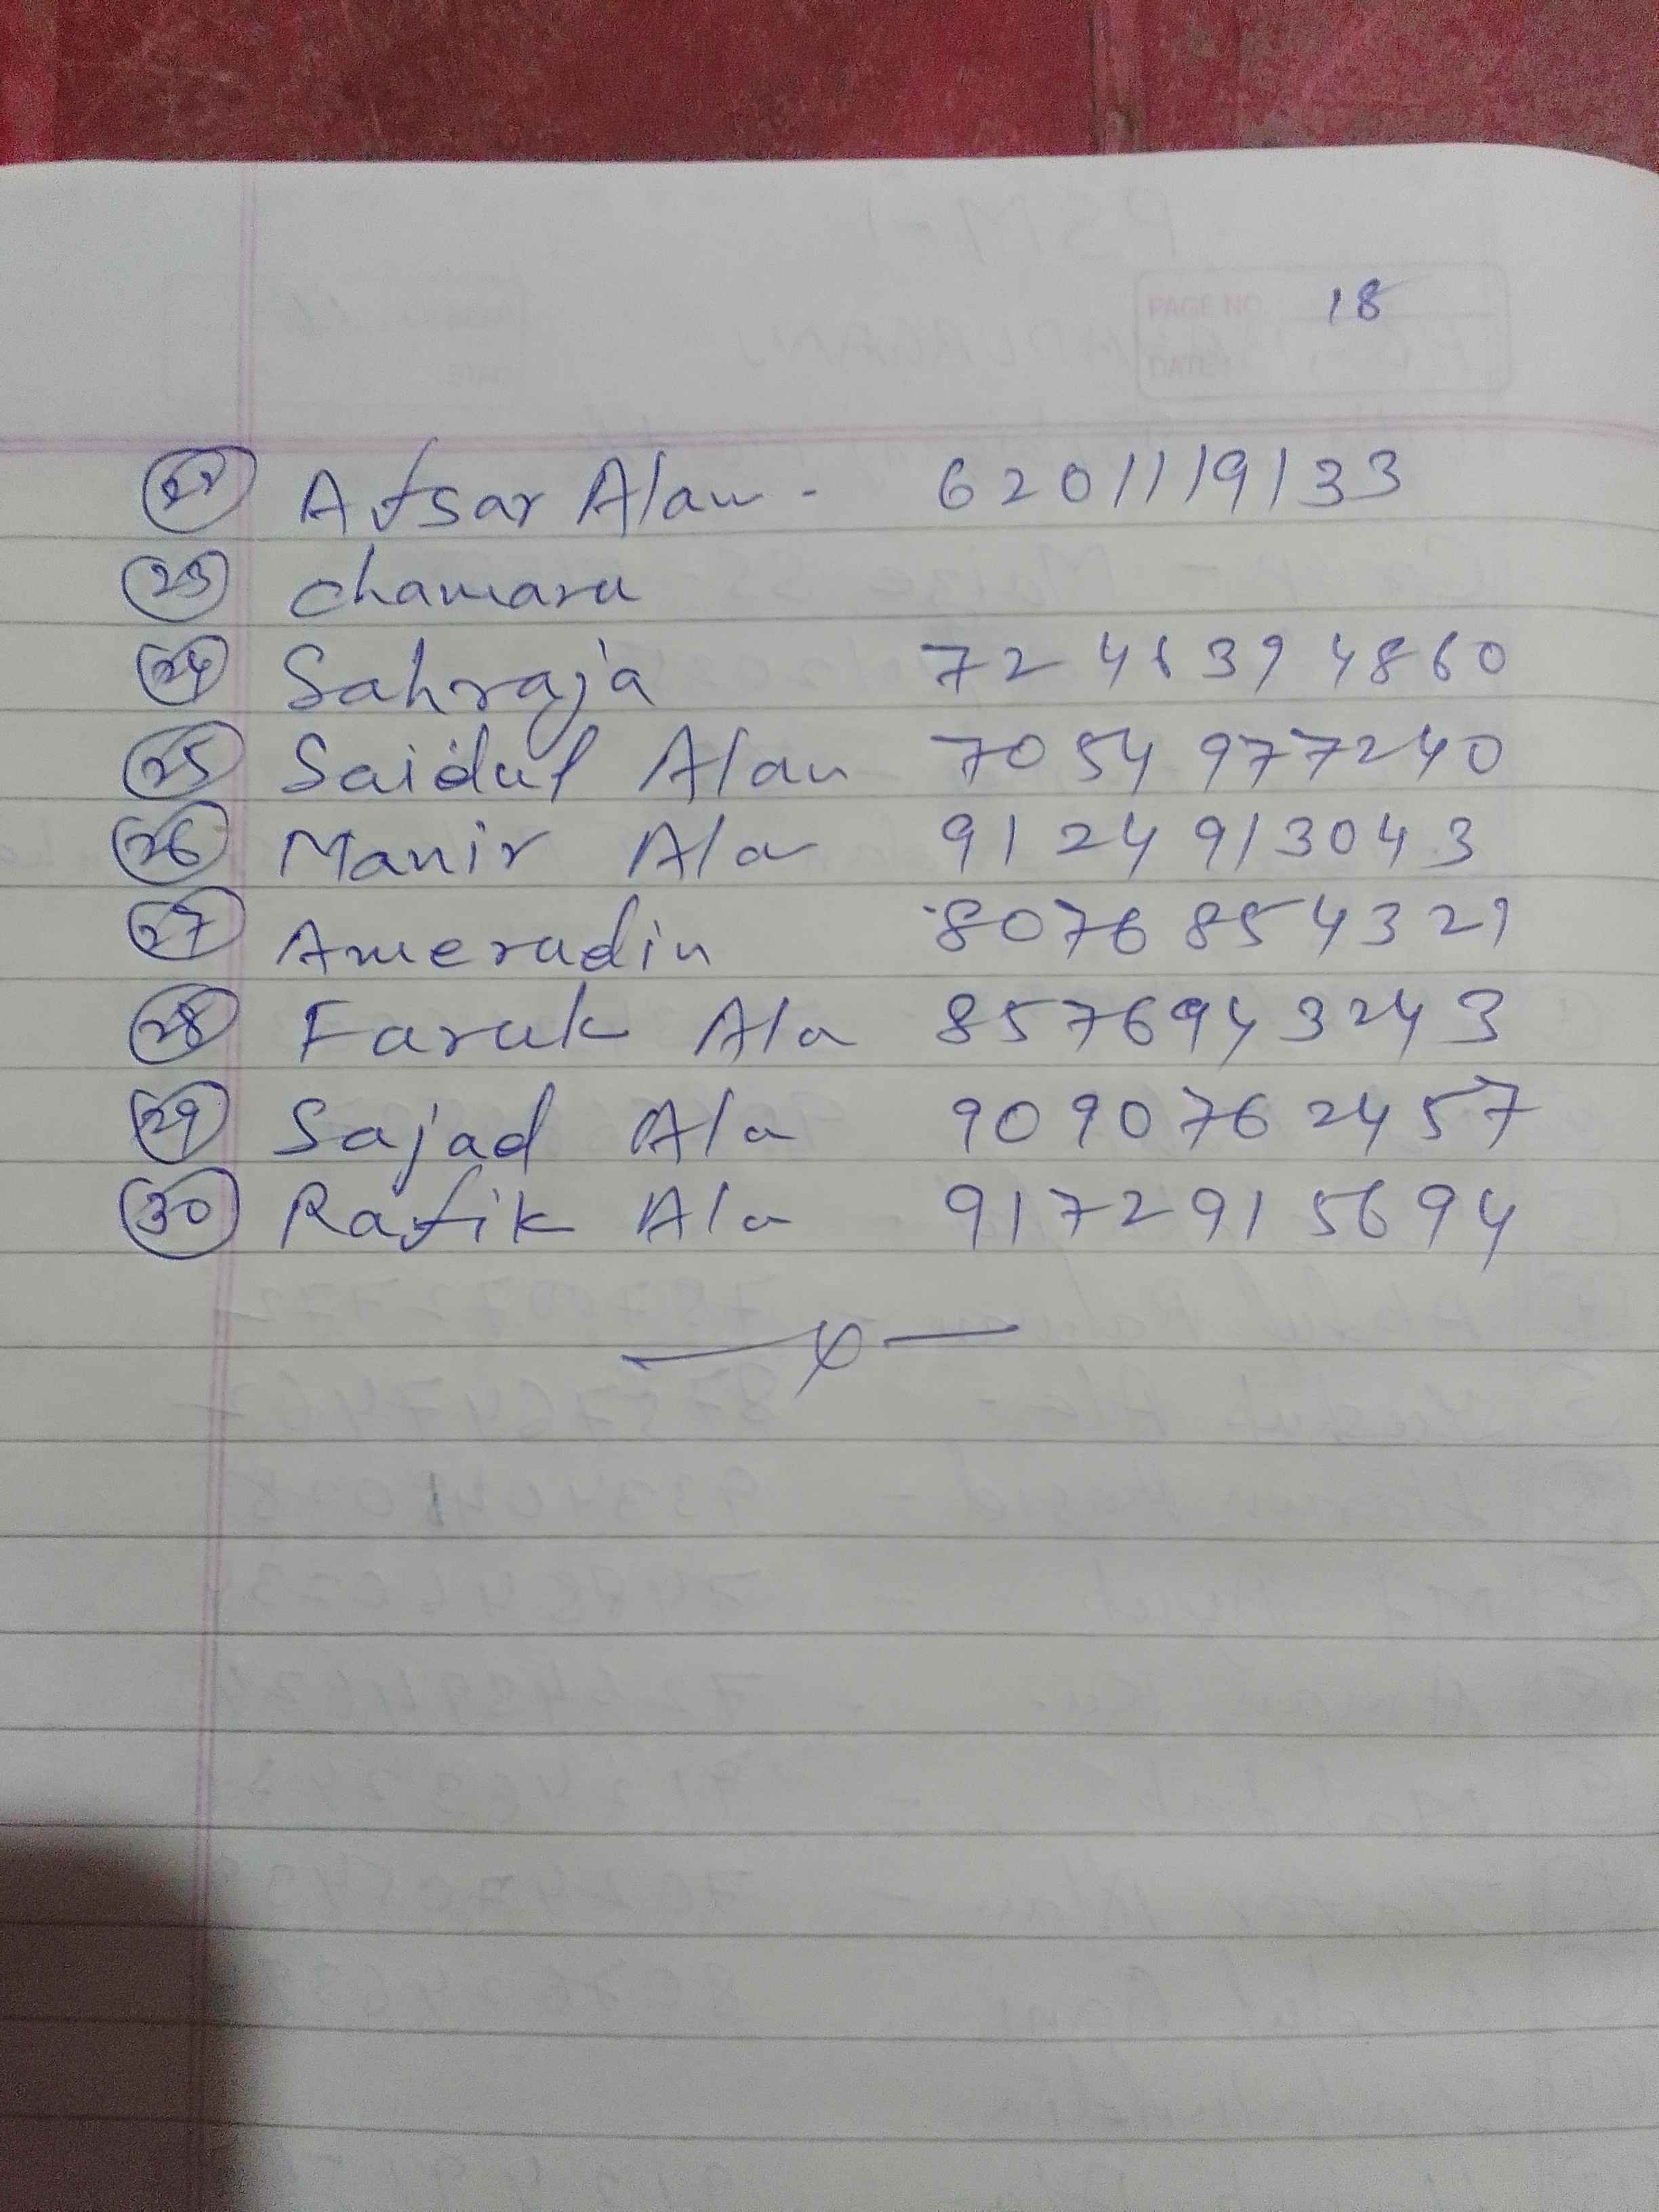 PAGE NO. 18
DATE:
22 Afsar Alam - 6201119133
23 Chamaru
24 Sahraja 7246394860
25 Saidul Alam 7054977240
26 Manir Ala 9124913043
27 Ameradin 8076854321
28 Faruk Ala 8576943243
29 Sajad Ala 9090762457
30 Rafik Ala 9172915694